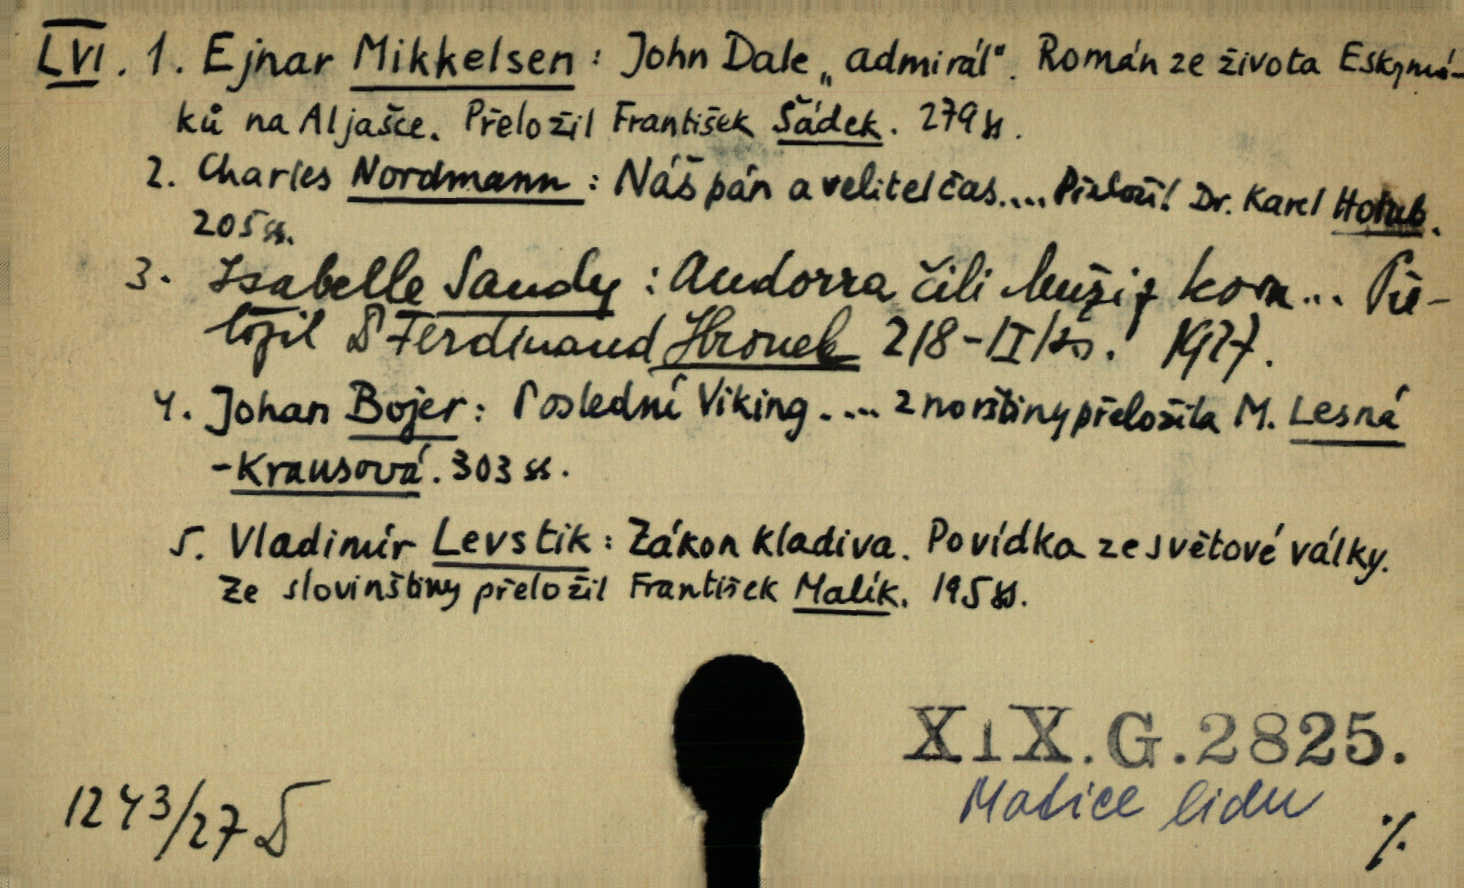 LVI. 1. Ejnar Mikkelsen: John Dale „admirál“. Román ze života Eskymá-
ků na Aljašce. Přeložil František Šádek. 279 ss.
2. Charles Nordmann: Náš pán a velitel čas.... Přeložil Dr. Karel Holub.
205 ss.
3. Isabelle Sandy: Andorra čili Muži z kovu... Pře-
ložil Dr Ferdinand Hronek 218-II/ss. 1927.
4. Johan Bojer: Poslední Viking.... z norštiny přeložila M. Lesná
-Krausová. 303 ss.
5. Vladimír Levstik: Zákon kladiva. Povídka ze světové války.
Ze slovinštiny přeložil František Malík. 195 ss.
XIX.G.2825.
Matice lidu
1243/27 D
./.